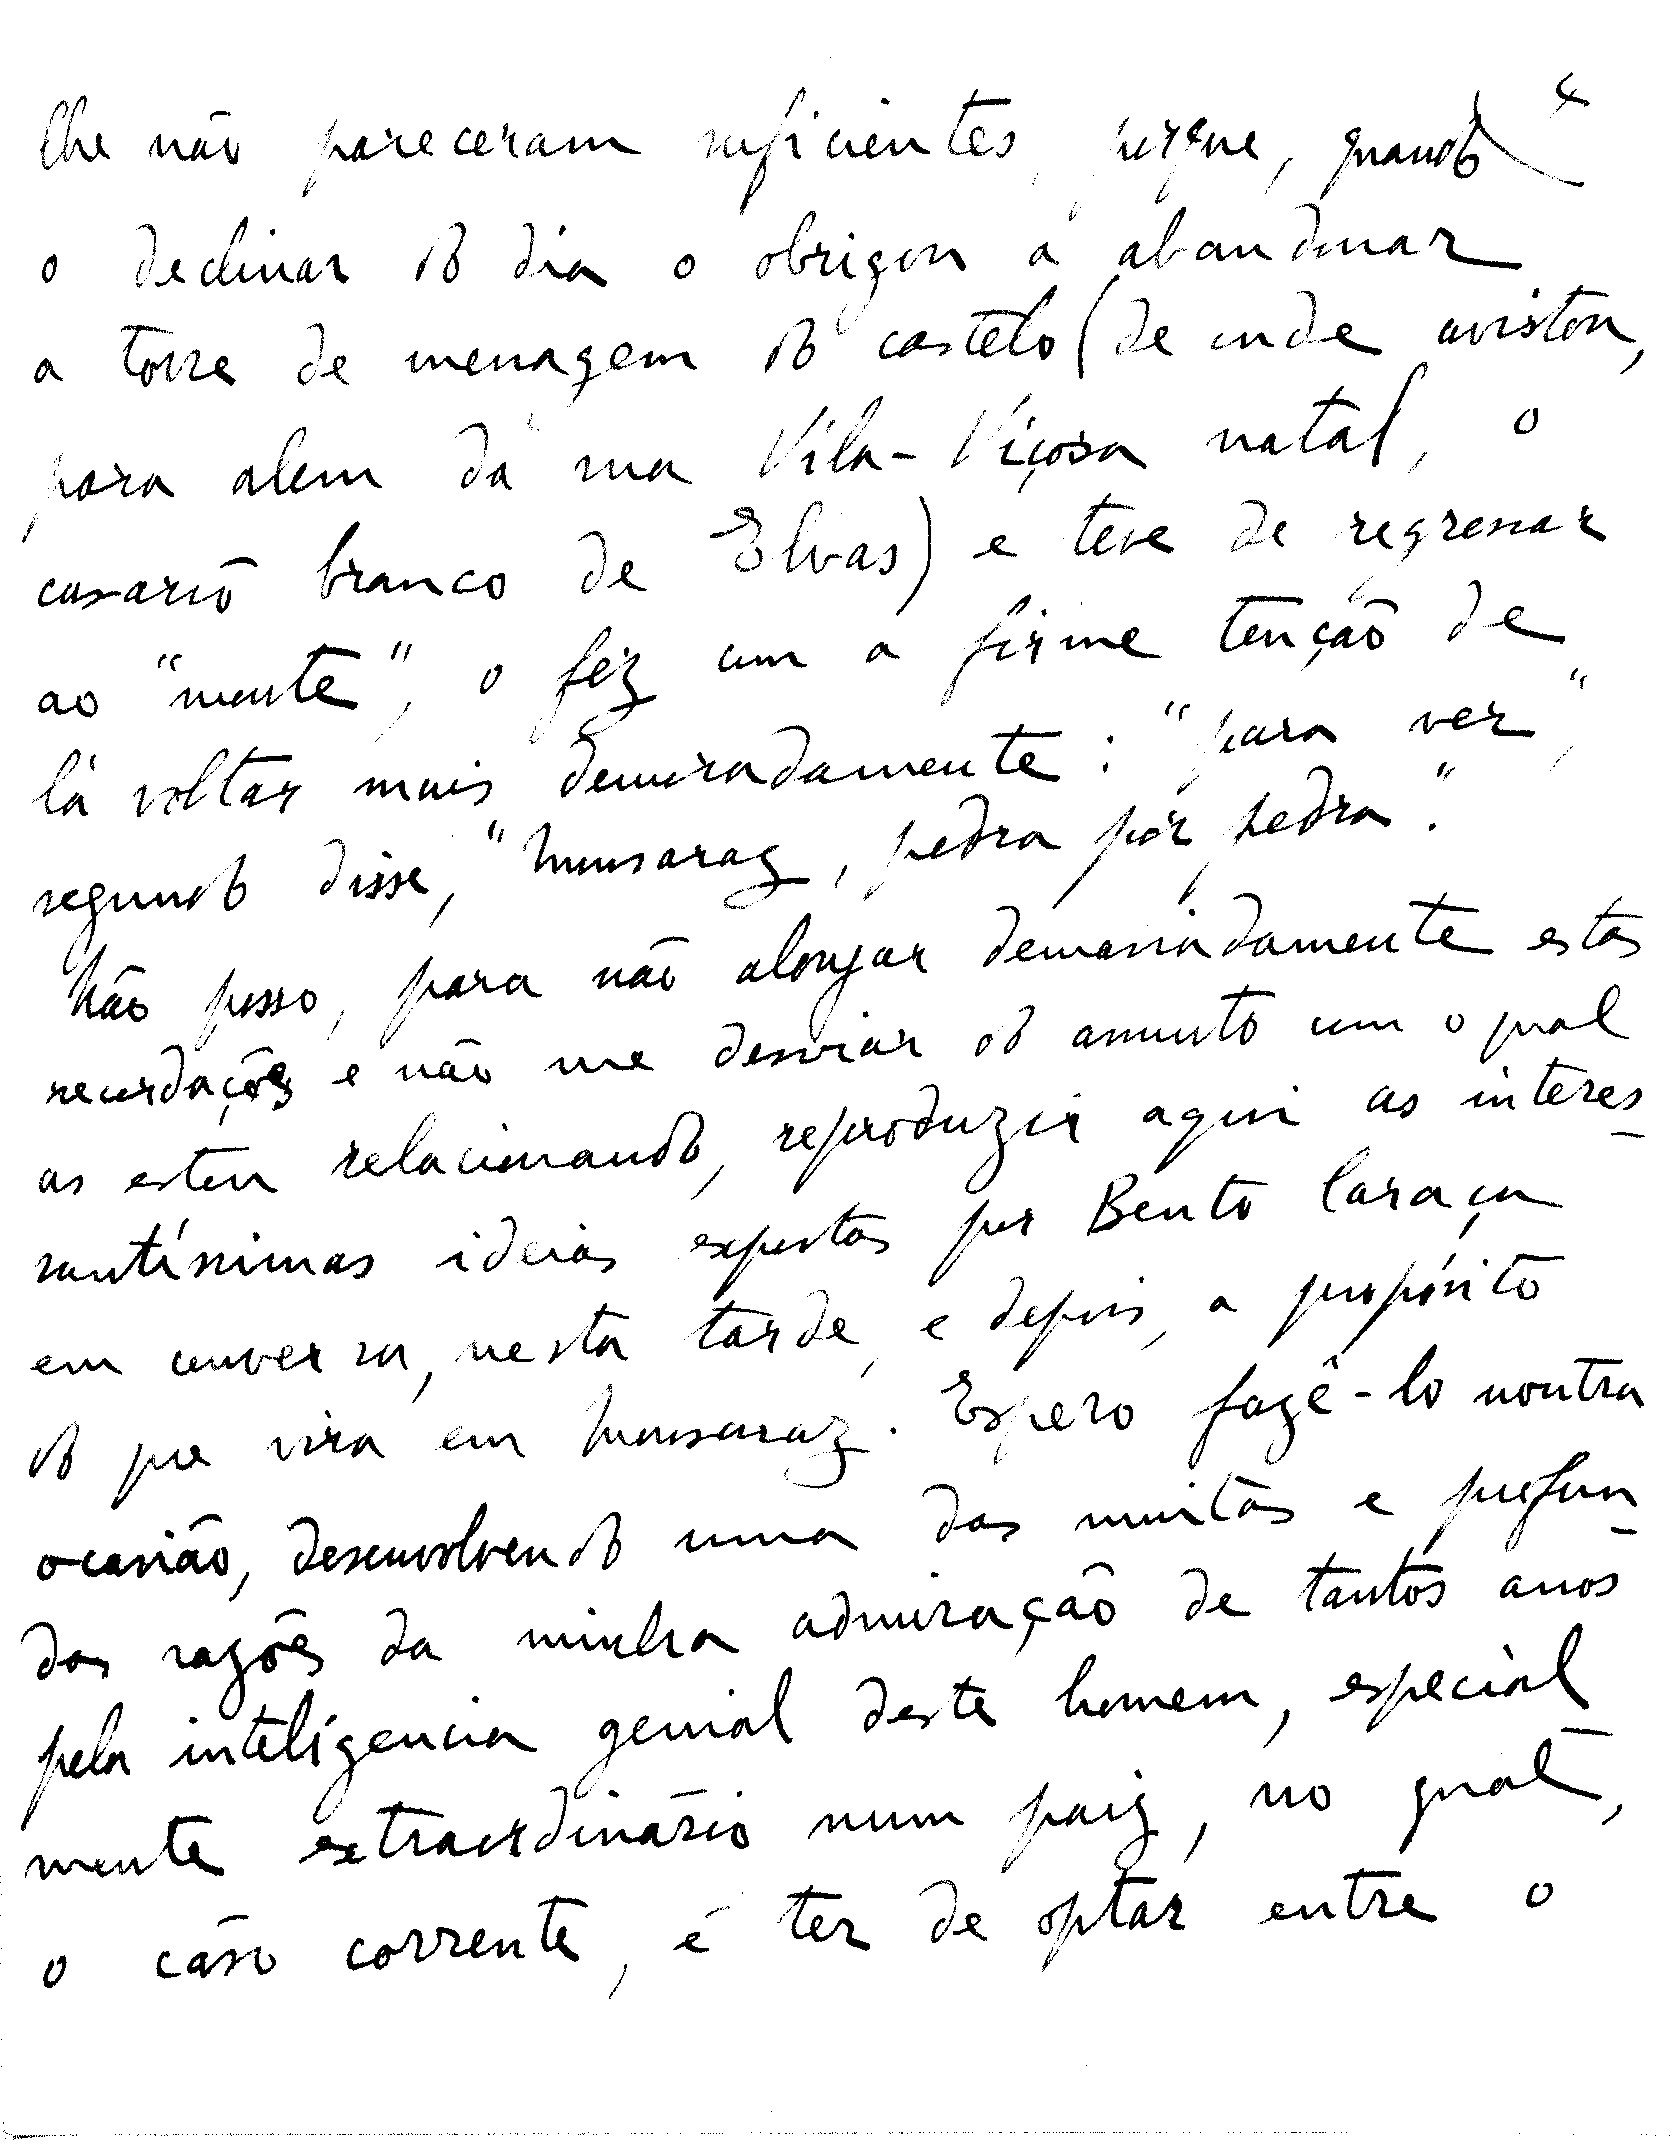 lhe não pareceram suficientes, porque, quando
o declinar do dia o obrigou a abandonar
a torre de menagem do castelo (de onde avistou,
para alem da sua Vila-Viçosa natal, o
casario branco de Elvas) e teve de regressar
ao "monte", o fez com a firme tenção de
lá voltar mais demoradamente: "para ver",
segundo disse, "Monsaraz, pedra por pedra".
Não posso, para não alongar demasiadamente estas
recordações e não me desviar do assunto com o qual
as estou relacionando, reproduzir aqui as interes-
santíssimas ideias expostas por Bento Caraça
em conversa, nesta tarde, e depois, a propósito
do que vira em Monsaraz. Espero fazê-lo noutra
ocasião, desenvolvendo uma das muitas e profun-
das razões da minha admiração de tantos anos
pela inteligencia genial deste homem, especial-
mente extraordinário num paiz, no qual,
o caso corrente, é ter de optar entre o